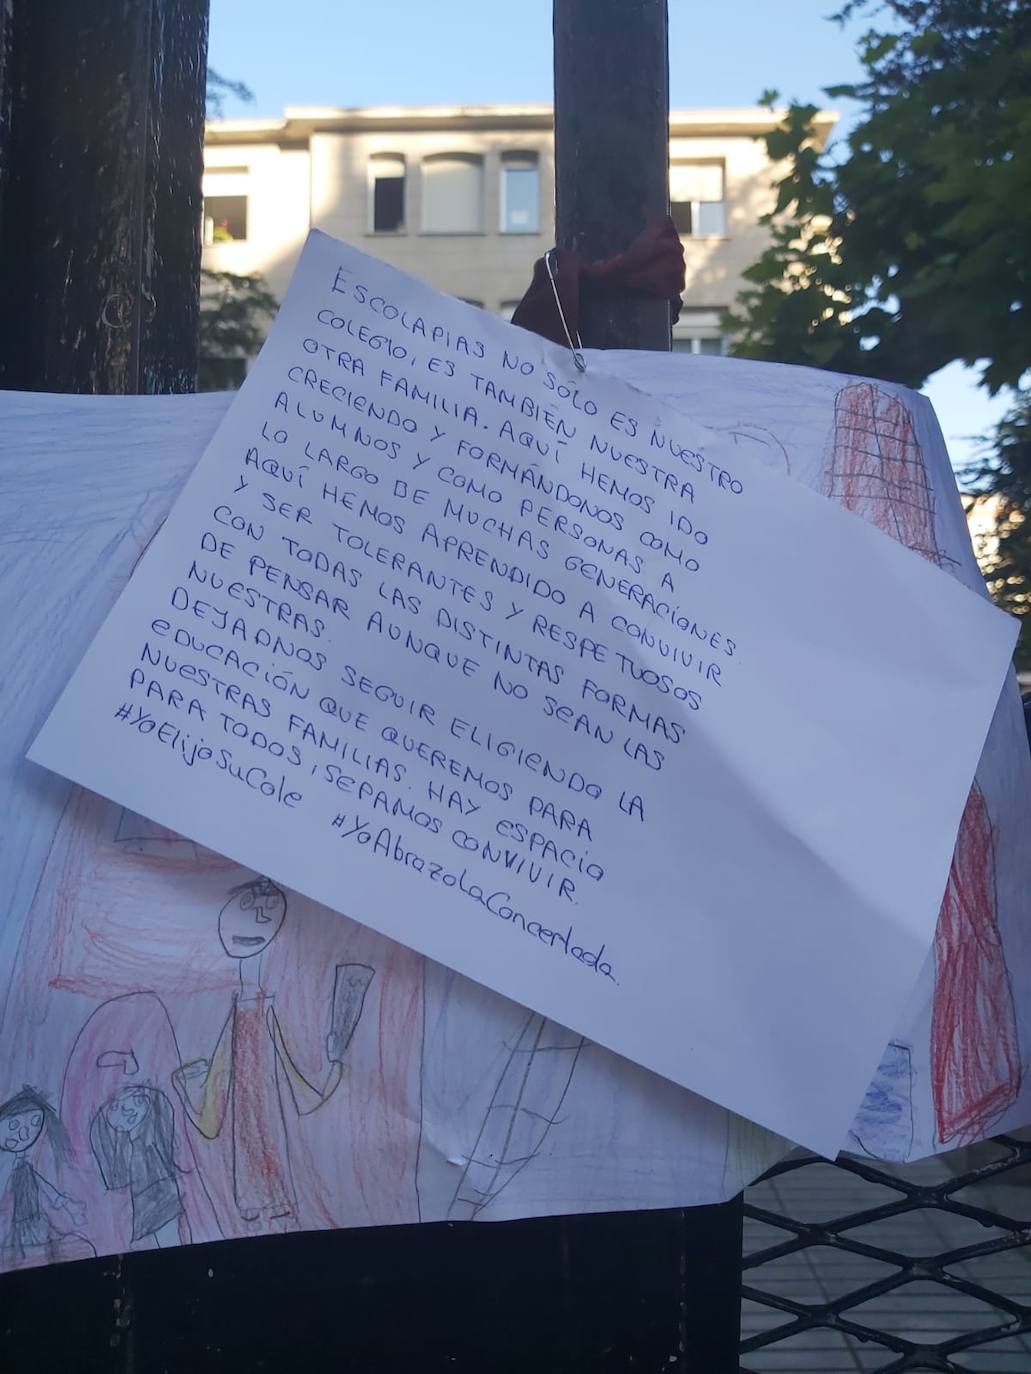 ESCOLAPIAS NO SÓLO ES NUESTRO
COLEGIO, ES TAMBIÉN NUESTRA
OTRA FAMILIA. AQUÍ HEMOS IDO
CRECIENDO Y FORMÁNDONOS COMO
ALUMNOS Y COMO PERSONAS A
LO LARGO DE MUCHAS GENERACIONES
AQUÍ HEMOS APRENDIDO A CONVIVIR
Y SER TOLERANTES Y RESPETUOSOS
CON TODAS LAS DISTINTAS FORMAS
DE PENSAR AUNQUE NO SEAN LAS
NUESTRAS.
DEJADNOS SEGUIR ELIGIENDO LA
EDUCACIÓN QUE QUEREMOS PARA
NUESTRAS FAMILIAS. HAY ESPACIO
PARA TODOS, SEPAMOS CONVIVIR.
#YoElijoSuCole #YoAbrazoLaConcertada.